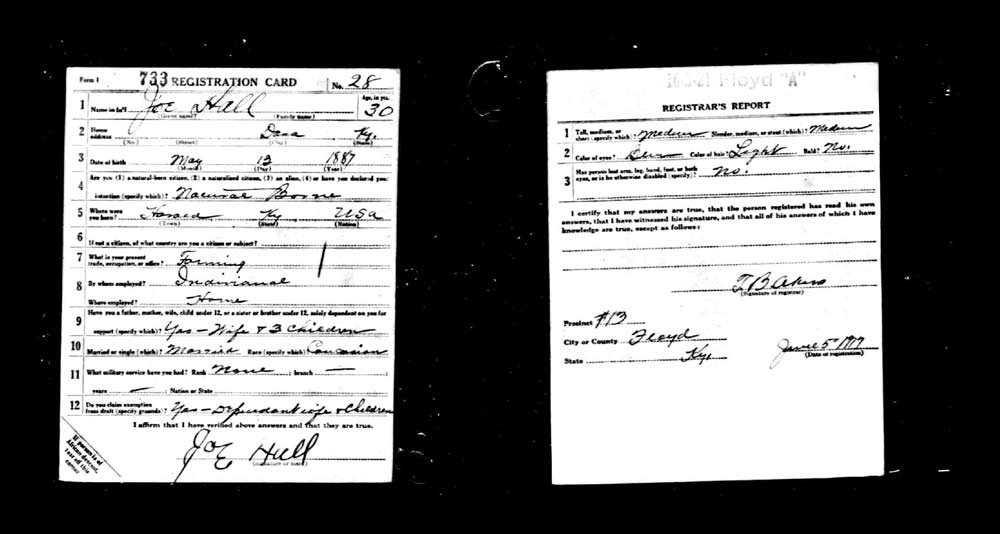 Form 1 733 REGISTRATION CARD No. 28
1 Name in full Joe Hall Age, in yrs. 30
(Given name) (Family name)
2 Home address Dana Ky.
(No.) (Street) (City) (State)
3 Date of birth May 13 1887
(Month) (Day) (Year)
4 Are you (1) a natural-born citizen, (2) a naturalized citizen, (3) an alien, (4) or have you declared your
intention (specify which)? Natural Borne
5 Where were you born? Harold Ky USA
(Town) (State) (Nation)
6 If not a citizen, of what country are you a citizen or subject?
7 What is your present trade, occupation, or office? Farming
8 By whom employed? Individual
Where employed? Home
9 Have you a father, mother, wife, child under 12, or a sister or brother under 12, solely dependent on you for
support (specify which)? Yes - Wife & 3 Children
10 Married or single (which)? Married Race (specify which)? Caucasion
11 What military service have you had? Rank None ; branch —
years — ; Nation or State
12 Do you claim exemption from draft (specify grounds)? Yes - Dependant wife & Children
I affirm that I have verified above answers and that they are true.
Joe Hall
(Signature or mark)
If person is of
African descent,
tear off this
corner
16-3-21 Floyd "A"
REGISTRAR'S REPORT
1 Tall, medium, or short (specify which)? Medium Slender, medium, or stout (which)? Medium
2 Color of eyes? Color of hair? Light Bald? No.
3 Has person lost arm, leg, hand, foot, or both
eyes, or is he otherwise disabled (specify)? No.
I certify that my answers are true, that the person registered has read his own
answers, that I have witnessed his signature, and that all of his answers of which I have
knowledge are true, except as follows:
T B Akers
(Signature of registrar)
Precinct #13
City or County Floyd
State Ky. June 5" 1917
(Date of registration)